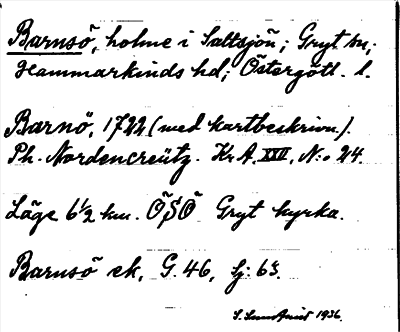 Barnsö, holme i Saltsjön; Gryt sn,
Hammarkinds hd; Östergötl. l.
Barnö, 1722 (med kartbeskrivn.).
Ph. Nordencreütz. Kr. A. XVII, N:o 24.
Läge 6½ km. ÖSÖ Gryt kyrka.
Barnsö ek, G. 46, Sj: 63.
1936.